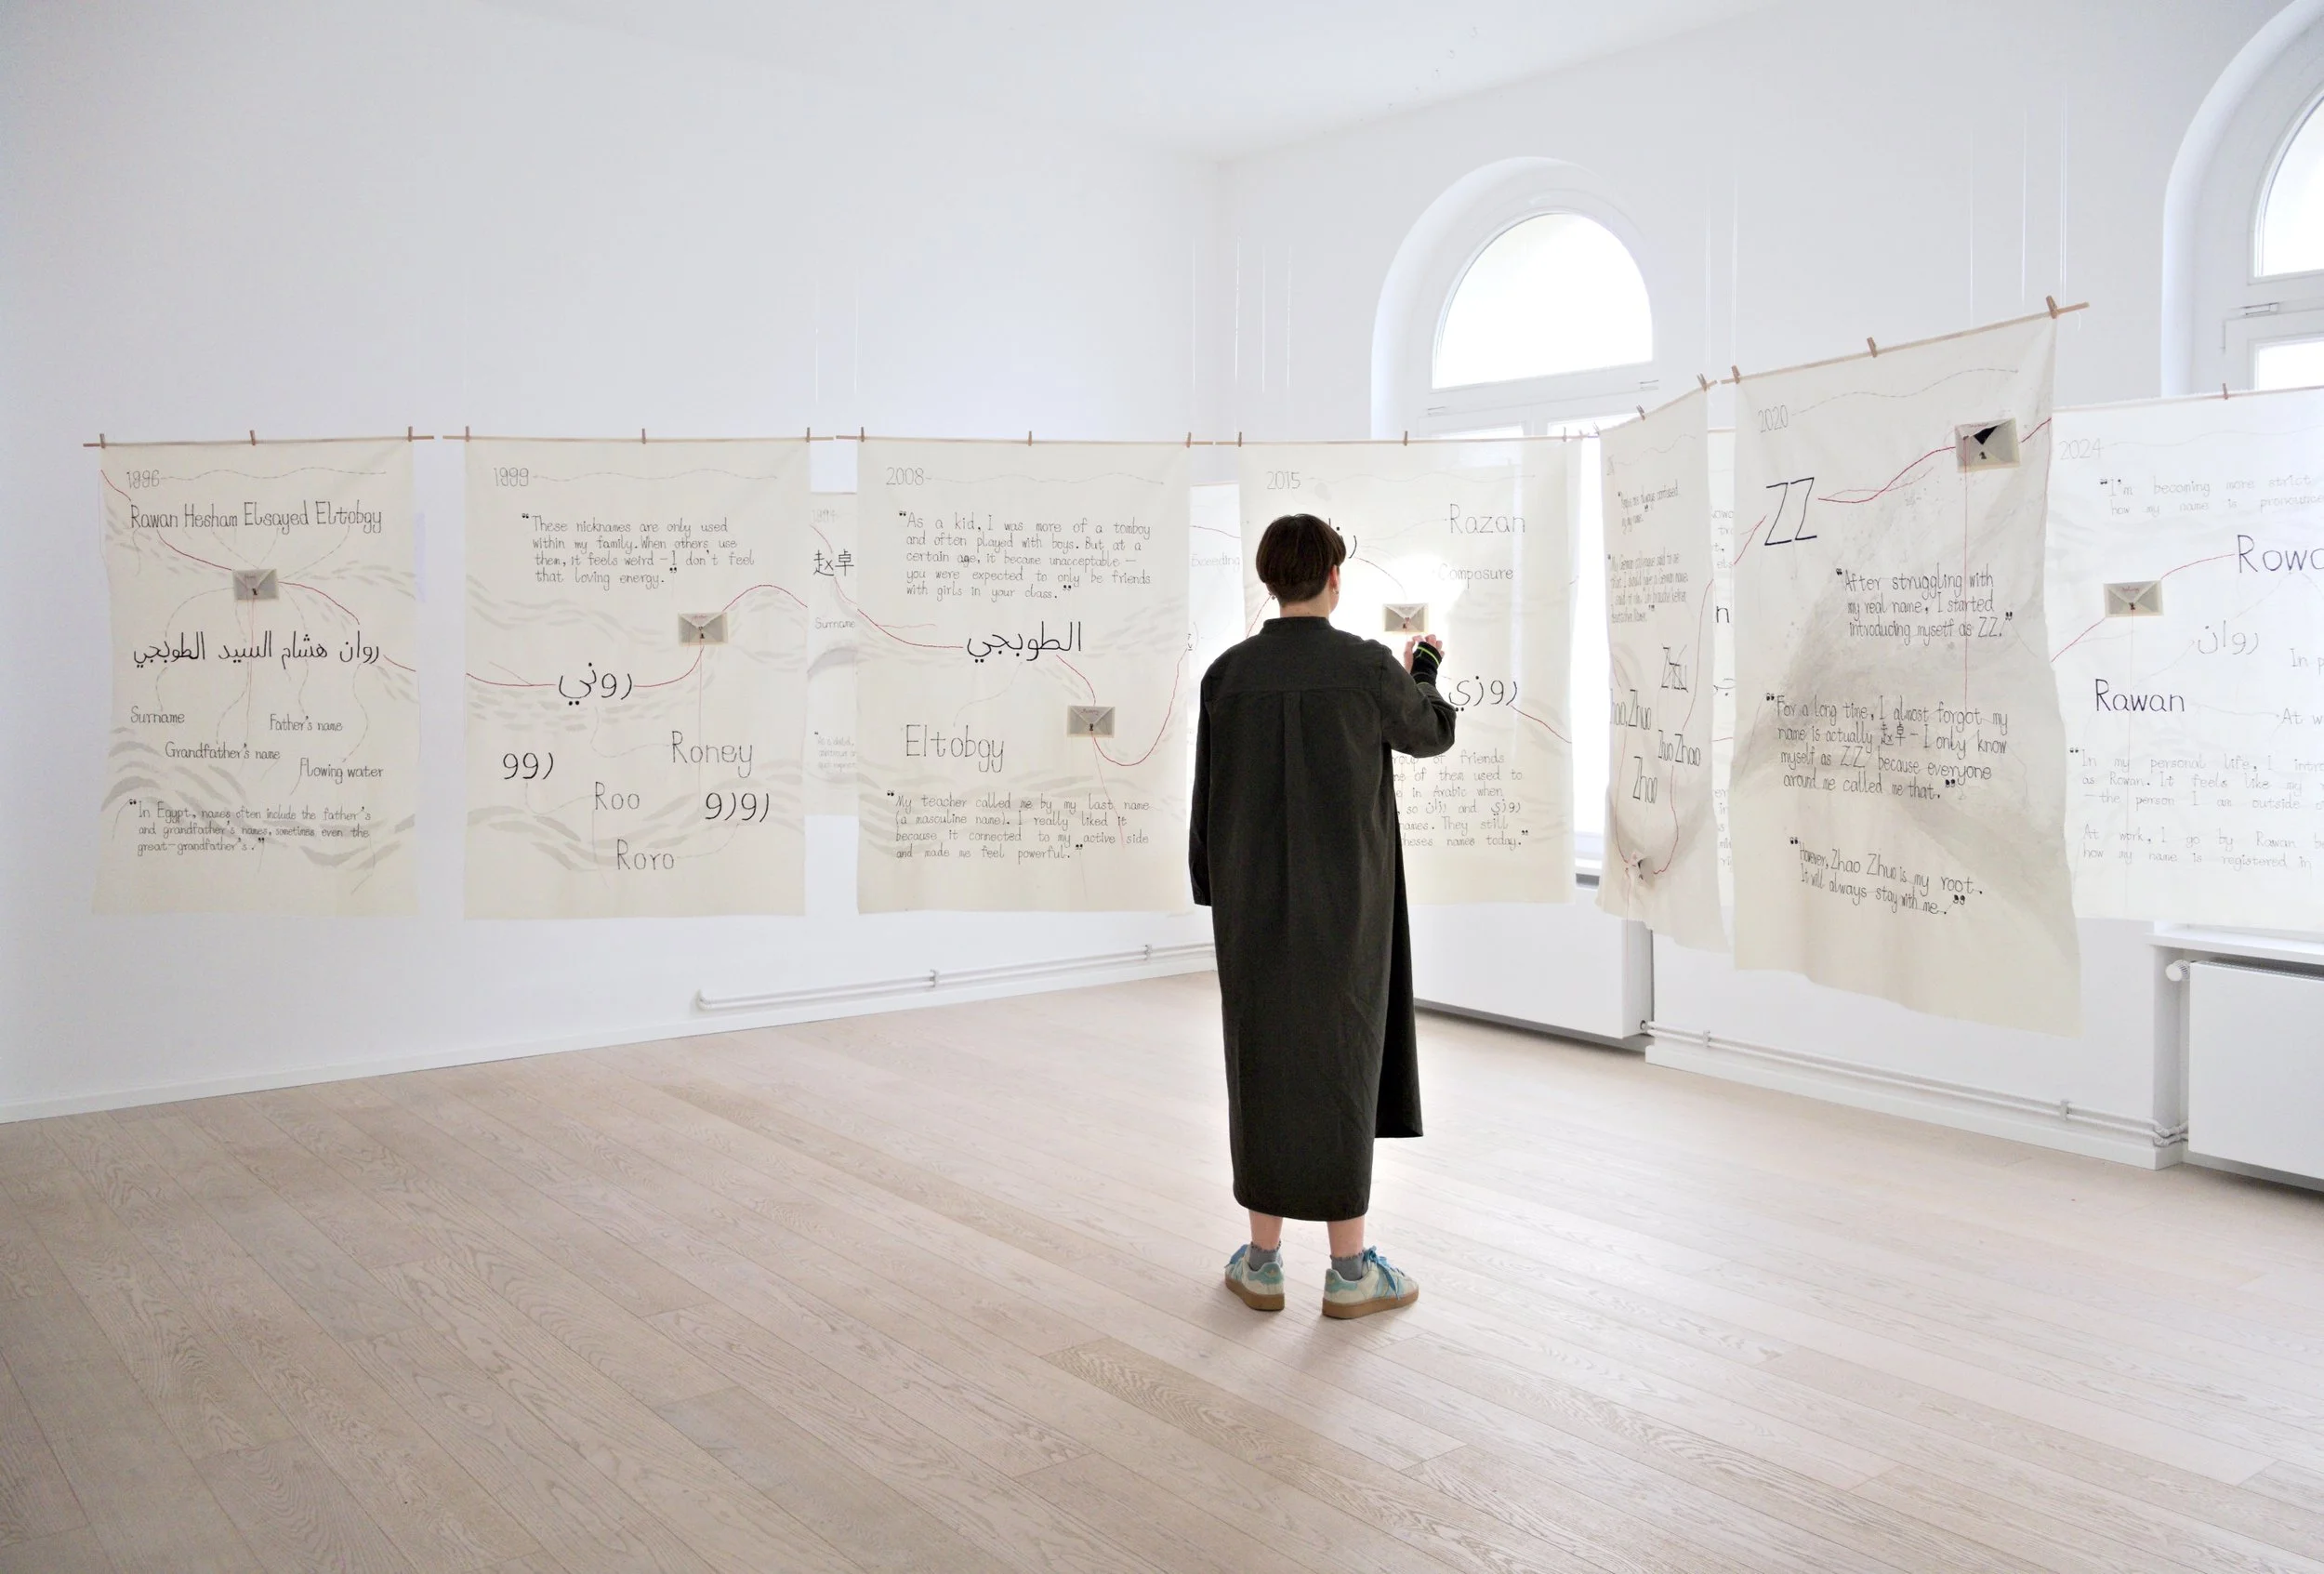 1996
Rawan Hesham Elsayed Eltobgy
روان هشام السيد الطوبجي
Surname
Father's name
Grandfather's name
Flowing water
"In Egypt, names often include the father's
and grandfather's names, sometimes even the
great-grandfather's."
1999
"These nicknames are only used
within my family. When others use
them, it feels weird – I don't feel
that loving energy."
روني
Roney
روو
Roo
رورو
Roro
赵卓
Surname
2008
"As a kid, I was more of a tomboy
and often played with boys. But at a
certain age, it became unacceptable –
you were expected to only be friends
with girls in your class."
الطوبجي
Eltobgy
"My teacher called me by my last name
(a masculine name). I really liked it
because it connected to my active side
and made me feel powerful."
Exceeding
2015
Razan
Composure
روزي
friends
of them used to
in Arabic when
so رزان and روزي
names. They still
those names today."
Zhao Zhuo
Zhuo Zhao
Zhao
2020
ZZ
"After struggling with
my real name, I started
introducing myself as ZZ."
"For a long time, I almost forgot my
name is actually 赵卓 – I only know
myself as 'ZZ' because everyone
around me called me that."
"However, Zhao Zhuo is my root.
It will always stay with me."
2024
"I'm becoming more strict
how my name is
روان
In
Rawan
At
"In my personal life, I
as Rowan. It feels like my
– the person I am outside
At work, I go by Rawan
how my name is registered in